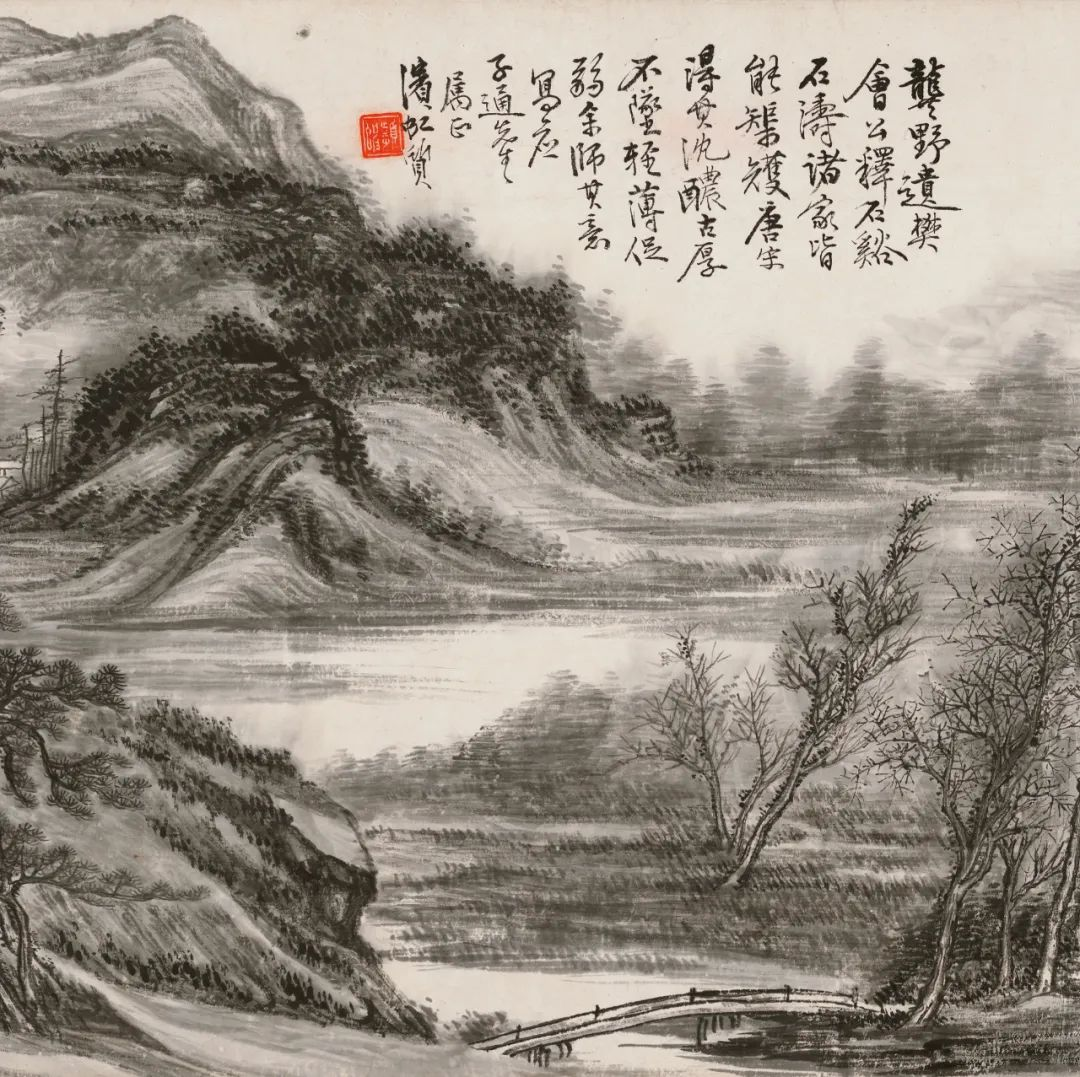 龔野遺樊
會公釋石谿
石濤諸家皆
能槼矱唐宋
得其沉醲古厚
不墜輕薄促
弱余師其意
寫應
子通先生
屬正
濱虹質